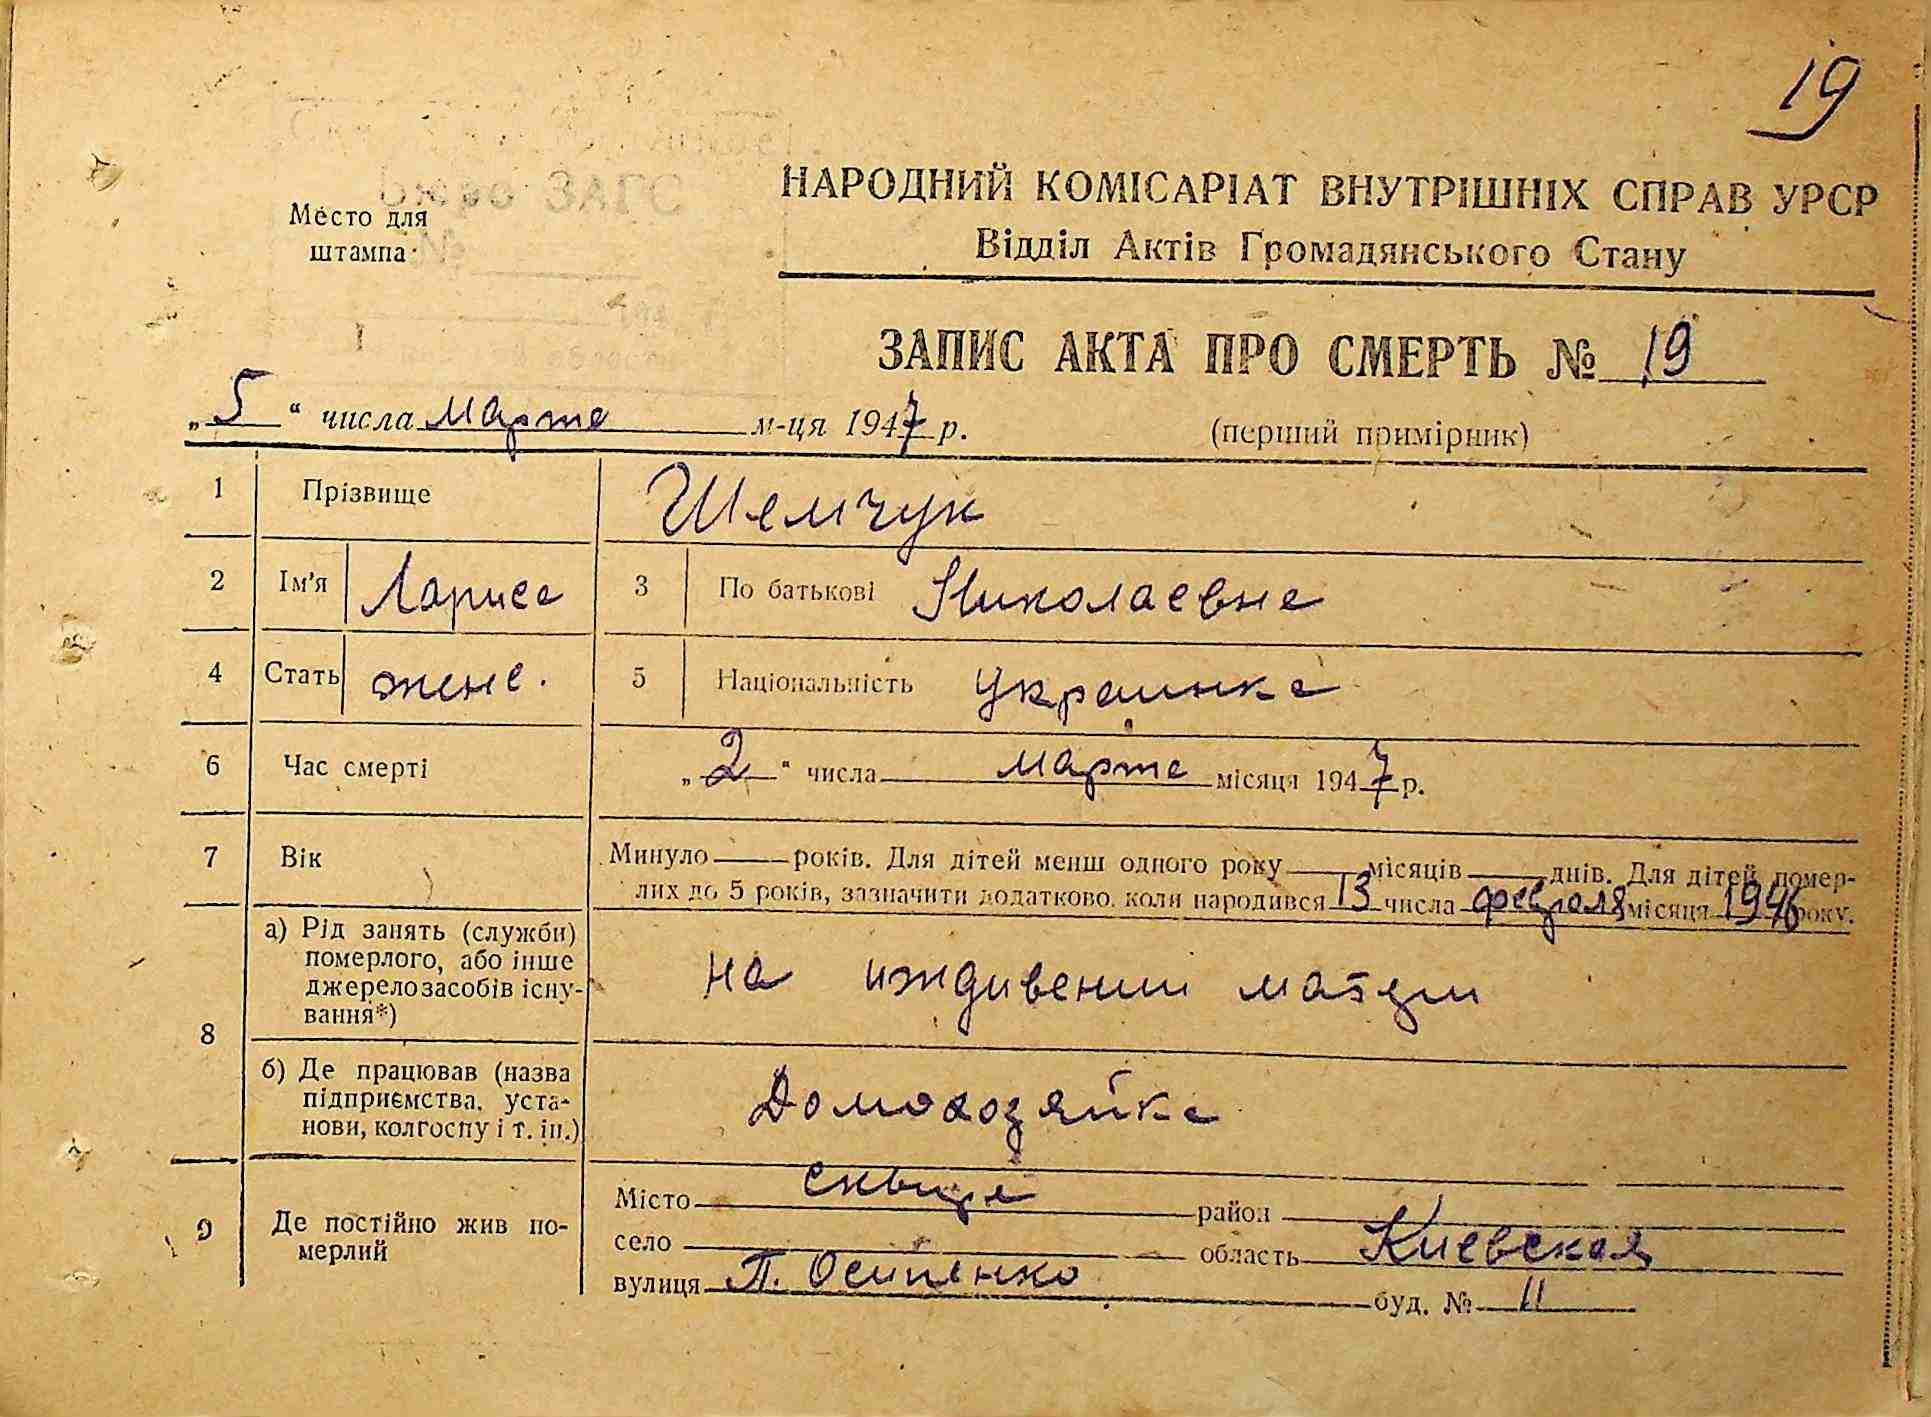 19
Бюро ЗАГС
Место для
штампа
НАРОДНИЙ КОМІСАРІАТ ВНУТРІШНІХ СПРАВ УРСР
Відділ Актів Громадянського Стану
ЗАПИС АКТА ПРО СМЕРТЬ № 19
„5“ числа марта м-ця 1947 р. (перший примірник)
1 Прізвище Шемчук
2 Ім'я Лариса 3 По батькові Николаевна
4 Стать женс. 5 Національність украинка
6 Час смерті „2“ числа марта місяця 1947 р.
7 Вік Минуло — років. Для дітей менш одного року — місяців — днів. Для дітей помер-
лих до 5 років, зазначити додатково, коли народився 13 числа февраля місяця 1946 року.
8 а) Рід занять (служби)
померлого, або інше
джерело засобів існу-
вання*)
на иждивении матери
б) Де працював (назва
підприємства, уста-
нови, колгоспу і т. ін.)
Домохозяйка
9 Де постійно жив по-
мерлий
Місто Сквира район
село область Киевская
вулиця П. Осипенко буд. № 11